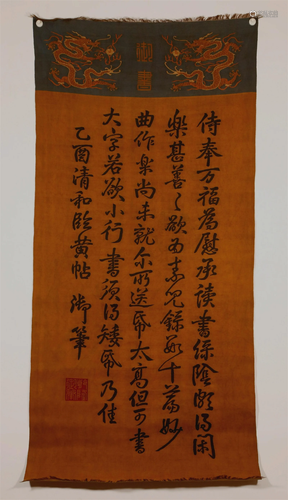 御書
侍奉万福為慰承读書綠陰頗得闲
樂甚善〻欲为素兒錄數十篇妙
曲作樂尚未就尔所送帋太高但可書
大字若欲小行書須得矮帋乃佳
乙酉清和臨黄帖 御筆